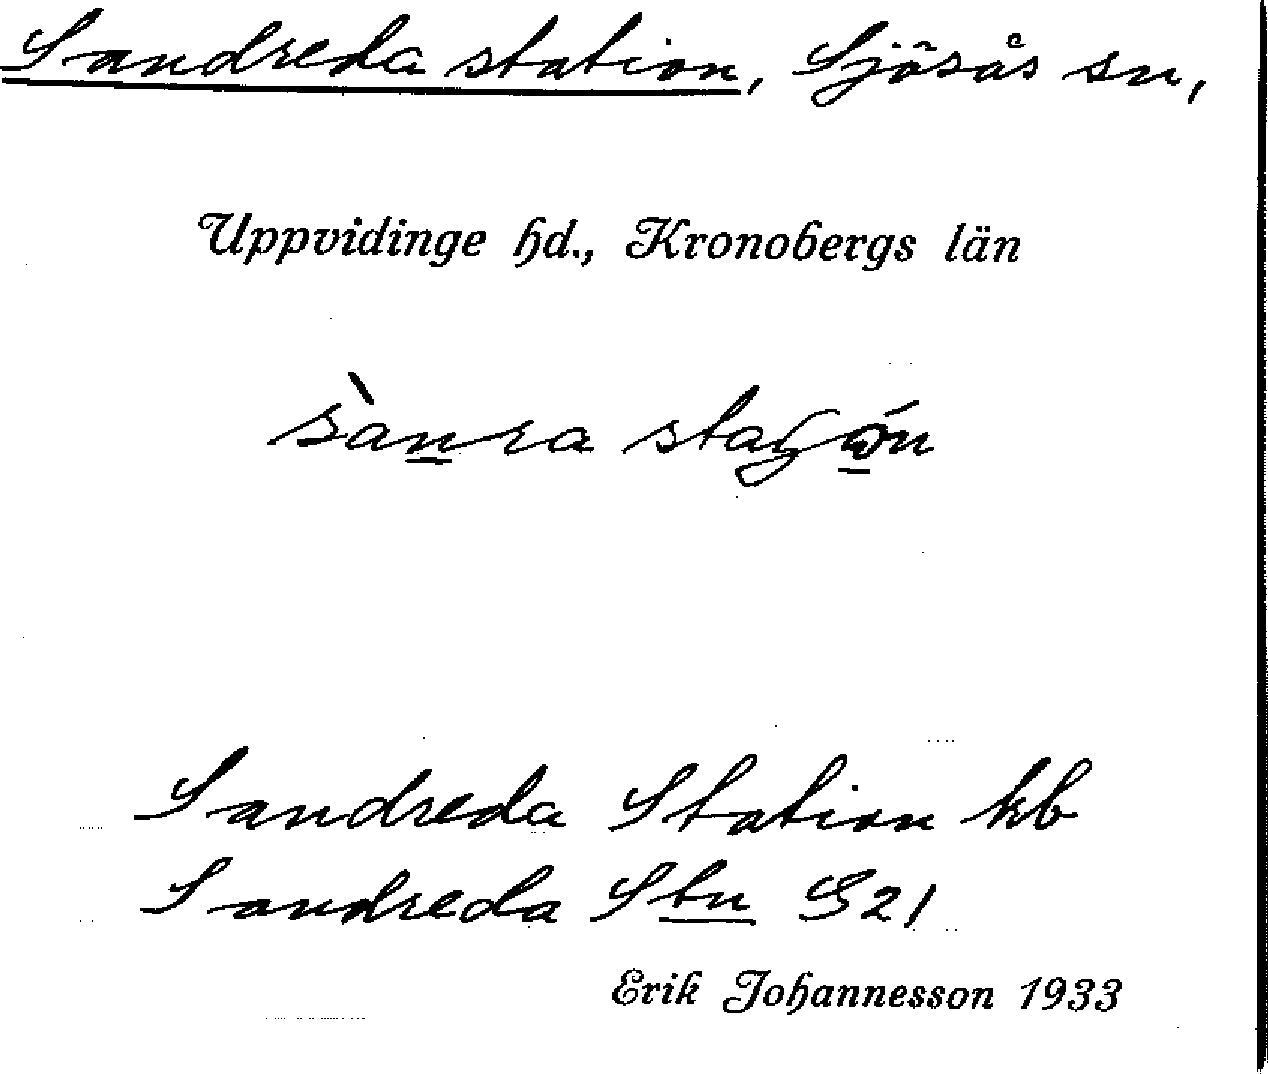 Sandreda station, Sjösås sn,
Uppvidinge hd., Kronobergs län
sànra
Sandreda Station kb
Sandreda Stn S21
Erik Johannesson 1933